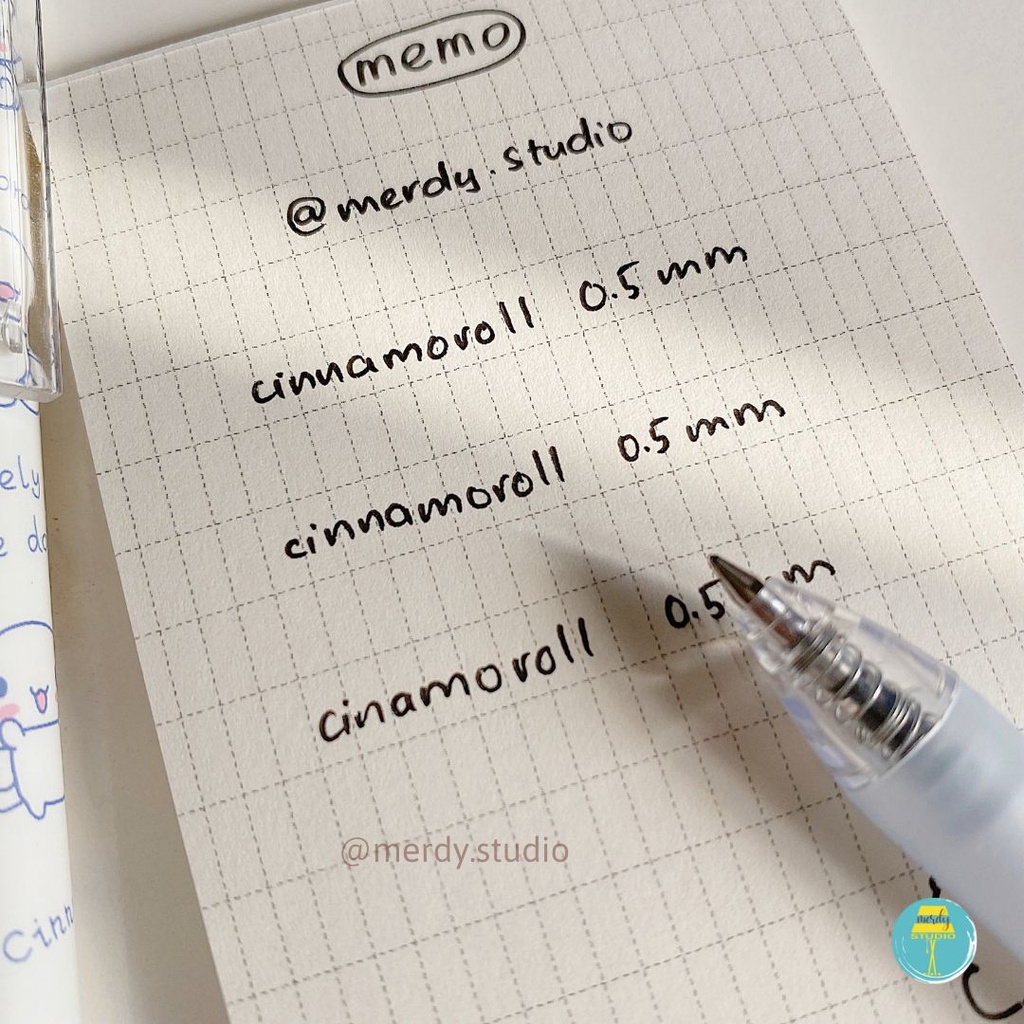 memo
@merdy.studio
cinnamoroll 0.5 mm
cinnamoroll 0.5 mm
cinamoroll 0.5 m
@merdy.studio
merdy
STUDIO
ely
Cinn